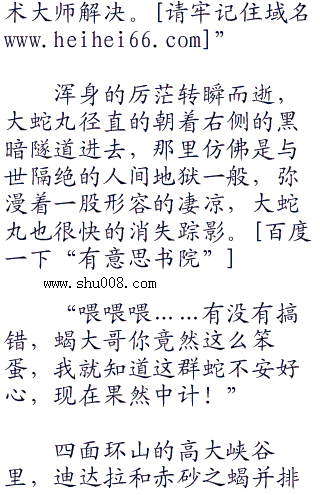 术大师解决。[请牢记住域名
www.heihei66.com]”
浑身的厉茫转瞬而逝，
大蛇丸径直的朝着右侧的黑
暗隧道进去，那里仿佛是与
世隔绝的人间地狱一般，弥
漫着一股形容的凄凉，大蛇
丸也很快的消失踪影。[百度
一下“有意思书院”]
www.shu008.com
“喂喂喂……有没有搞
错，蝎大哥你竟然这么笨
蛋，我就知道这群蛇不安好
心，现在果然中计！”
四面环山的高大峡谷
里，迪达拉和赤砂之蝎并排